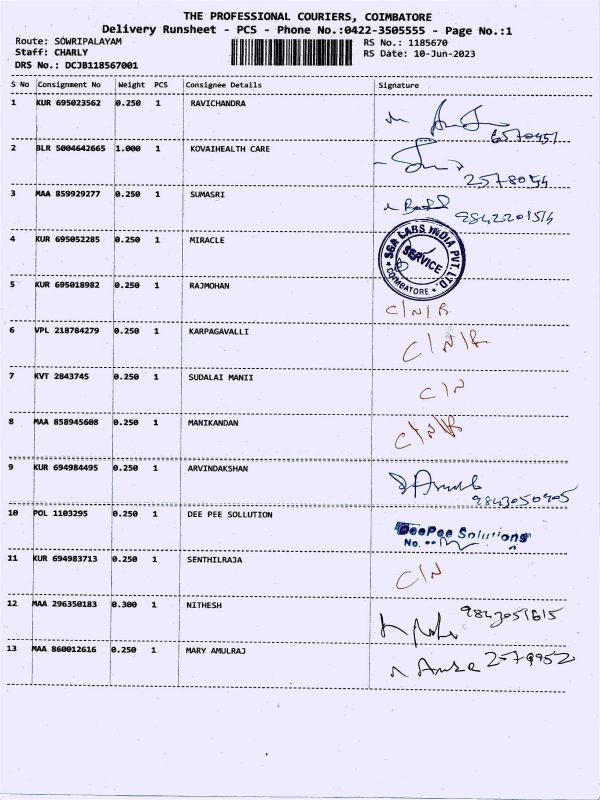 THE PROFESSIONAL COURIERS, COIMBATORE
Delivery Runsheet - PCS - Phone No.:0422-3505555 - Page No.:1
Route: SOWRIPALAYAM RS No.: 1185670
Staff: CHARLY RS Date: 10-Jun-2023
DRS No.: DCJB118567001
S No Consignment No Weight PCS Consignee Details Signature
1 KUR 695023562 0.250 1 RAVICHANDRA
6570457
2 BLR 5004642665 1.000 1 KOVAIHEALTH CARE
2578054
3 MAA 859929277 0.250 1 SUMASRI
9842201514
4 KUR 695052285 0.250 1 MIRACLE
SGA LABS INDIA PVT. LTD.
SERVICE
* COIMBATORE *
5 KUR 695018982 0.250 1 RAJMOHAN
C/N/R
6 VPL 218784279 0.250 1 KARPAGAVALLI
C/N/R
7 KVT 2843745 0.250 1 SUDALAI MANII
C/N
8 MAA 858945608 0.250 1 MANIKANDAN
C/N/R
9 KUR 694984495 0.250 1 ARVINDAKSHAN
9843050905
10 POL 1103295 0.250 1 DEE PEE SOLLUTION
DeePee Solutions
No.
11 KUR 694983713 0.250 1 SENTHILRAJA
C/N
12 MAA 296350183 0.300 1 NITHESH
9843051615
13 MAA 860012616 0.250 1 MARY AMULRAJ
2579952